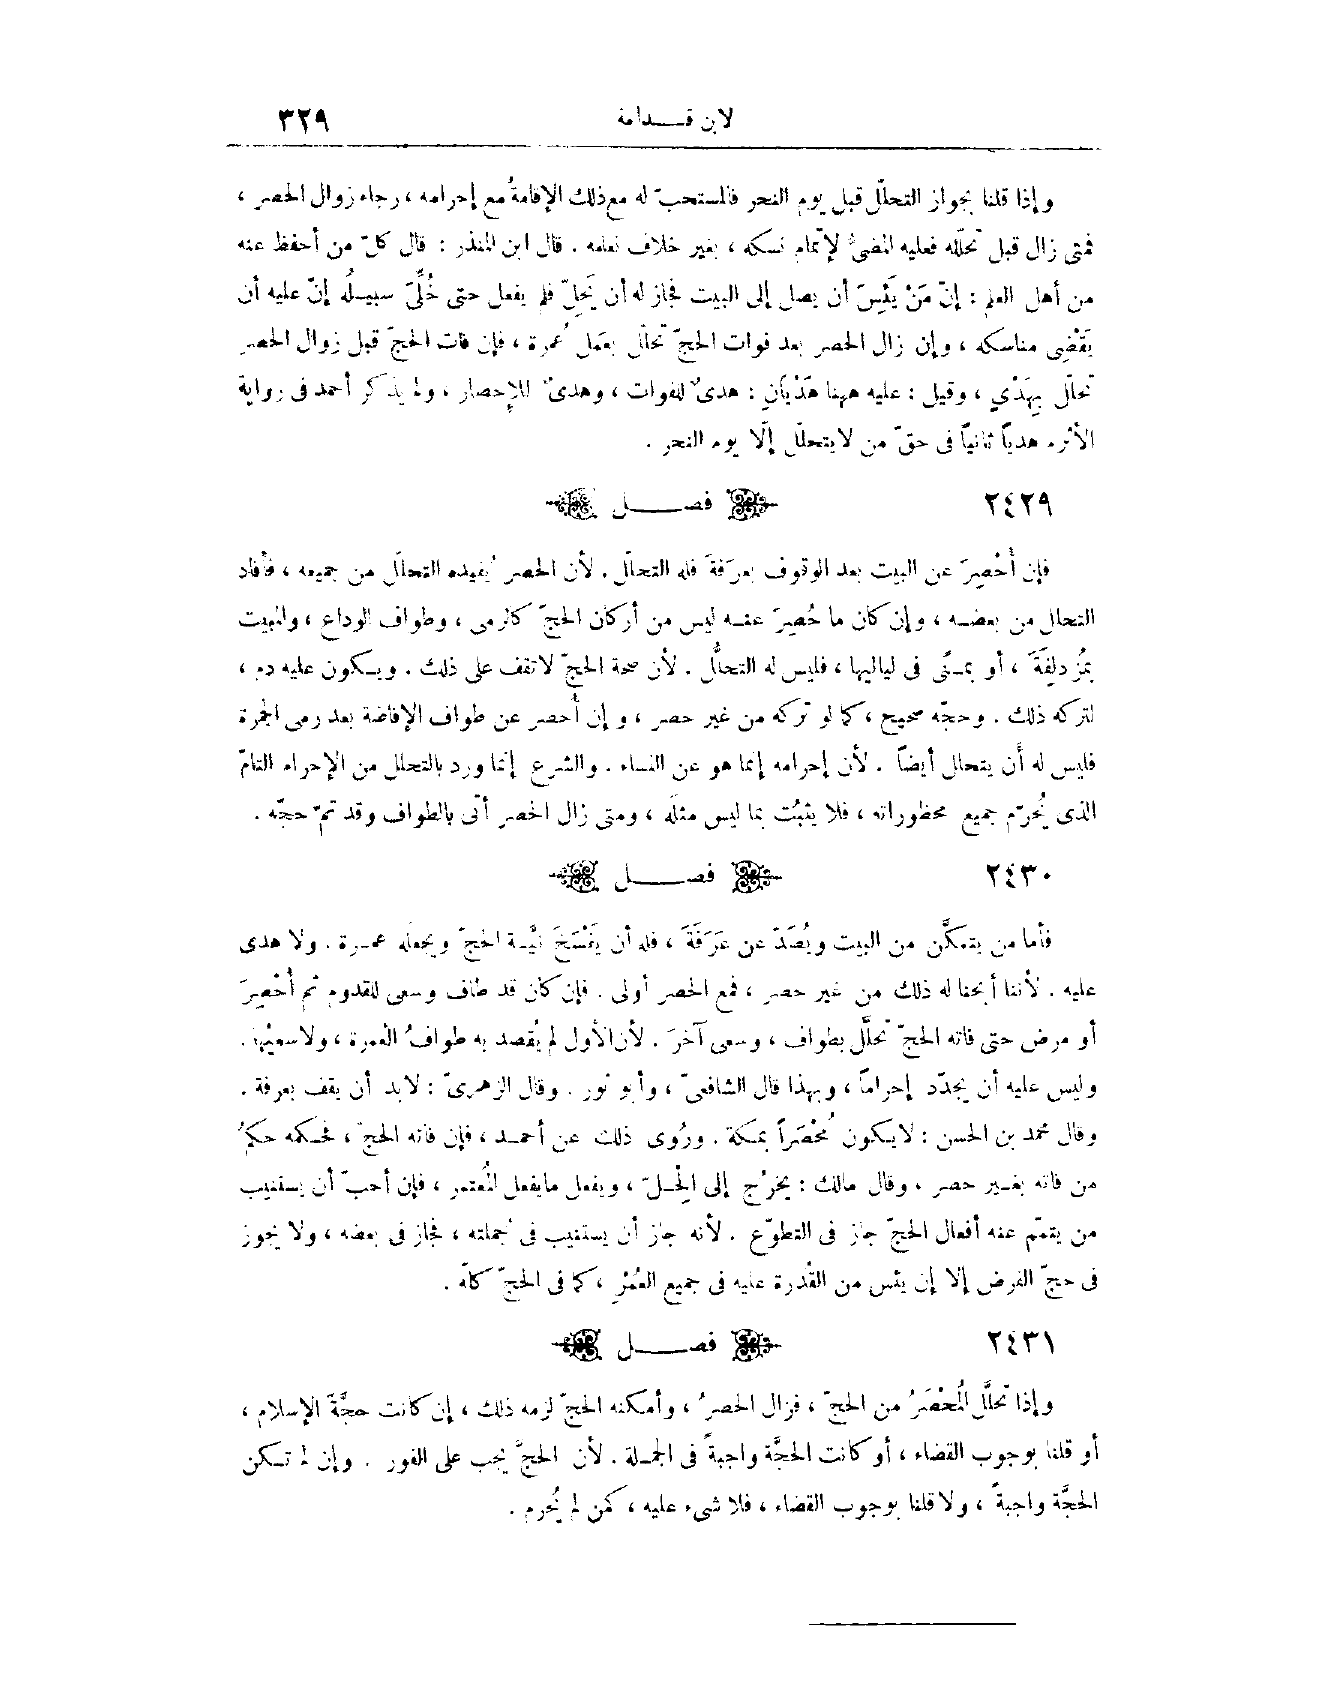 لابن قدامة ٣٢٩
وإذا قلنا بجواز التحلّل قبل يوم النحر فالمستحبّ له مع ذلك الإقامةُ مع إحرامه ، رجاء زوال الحصر ،
فمتى زال قبل تحلّله فعليه المضىّ لإتمام نسكه ، بغير خلاف نعلمه . قال ابن المنذر : قال كلّ من أحفظ عنه
من أهل العلم : إنّ مَنْ يَئِسَ أن يصل إلى البيت فجاز له أن يَحِلّ فلم يفعل حتى خُلِّىَ سبيلُه إنّ عليه أن
يَقْضِى مناسكه ، وإن زال الحصر بعد فوات الحجّ تحلّل بعَمل عُمرة ، فإن فات الحجّ قبل زوال الحصر
تحلّل بِهَدْيٍ ، وقيل : عليه ههنا هَدْيَانِ : هدىٌ للفوات ، وهدىٌ للإحصار ، ولم يذكر أحمد فى رواية
الأثرم هدياً ثانياً فى حقّ من لا يتحلّل إلّا يوم النحر .
٢٤٢٩ فصل
فإن أُحْصِرَ عن البيت بعد الوقوف بعرَفةَ فله التحلّل . لأن الحصر يُفيده التحلّل من جميعه ، فأفاد
التحلل من بعضه ، وإن كان ما حُصِرَ عنه ليس من أركان الحجّ كالرمى ، وطواف الوداع ، والمبيت
بمُزْدلِفَةَ ، أو بمنًى فى لياليها ، فليس له التحلُّل . لأن صحة الحجّ لا تقف على ذلك . ويكون عليه دم ،
لتركه ذلك . وحجّه صحيح ، كما لو تركه من غير حصر ، وإن أُحصر عن طواف الإفاضة بعد رمى الجمرة
فليس له أن يتحلل أيضاً . لأن إحرامه إنما هو عن النساء . والشرع إنما ورد بالتحلل من الإحرام التامّ
الذى يُحرّم جميع محظوراته ، فلا يثبُت بما ليس مثلَه ، ومتى زال الحصر أتى بالطواف وقد تمّ حجّه .
٢٤٣٠ فصل
فأما من يتمكَّن من البيت ويُصَدّ عن عَرَفَةَ ، فله أن يَفْسَخَ نيَّة الحجّ ويجعلَه عمرة . ولا هدى
عليه . لأننا أبحنا له ذلك من غير حصر ، فمع الحصر أولى . فإن كان قد طاف وسعى للقدوم ثم أُحْصِرَ
أو مرض حتى فاته الحجّ تحلَّل بطواف ، وسعى آخرَ . لأن الأول لم يُقصد به طوافُ العمرة ، ولا سعيُها .
وليس عليه أن يجدّد إحراماً ، وبهذا قال الشافعىّ ، وأبو ثور . وقال الزهرىّ : لا بد أن يقف بعرفة .
وقال محمد بن الحسن : لا يكون مُحْصَراً بمكة . ورُوى ذلك عن أحمد ، فإن فاته الحجّ ، فحكمه حكمُ
من فاته بغير حصر ، وقال مالك : يخرُج إلى الحِلّ ، ويفعل ما يفعل المُعتمر ، فإن أحبّ أن يستنيب
من يتمّم عنه أفعال الحجّ جاز فى التطوّع . لأنه جاز أن يستنيب فى جُملته ، فجاز فى بعضه ، ولا يجوز
فى حجّ الفرض إلا إن يئس من القُدرة عليه فى جميع العُمْرِ ، كما فى الحجّ كلّه .
٢٤٣١ فصل
وإذا تحلَّل المُحْصَرُ من الحجّ ، فزال الحصرُ ، وأمكنه الحجّ لزمه ذلك ، إن كانت حجَّةَ الإسلام ،
أو قلنا بوجوب القضاء ، أو كانت الحجَّة واجبةً فى الجملة . لأن الحجَّ يجب على الفور . وإن لم تكن
الحجَّة واجبةً ، ولا قلنا بوجوب القضاء ، فلا شىء عليه ، كمن لم يُحرم .